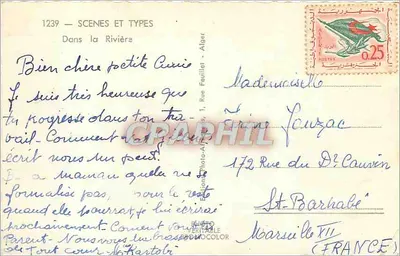 1239 — SCENES ET TYPES
Dans la Rivière
Bien chère petite Amie
Je suis très heureuse que
tu progresse dans ton tra-
vail. Comment
écrit nous un peu.
a maman qu'elle ne se
formalise pas, pour le reste
quand elle pourrat, je lui écrirai
prochainement. Comment vont
Parent. Nous vous embrassons
de tout cœur
Alger
VÉRITABLE
PHOTOCOLOR
CPAPHIL
0,25
Mademoiselle
172 Rue du Dr Cauvin
St-Barnabé
Marseille XII
(FRANCE)